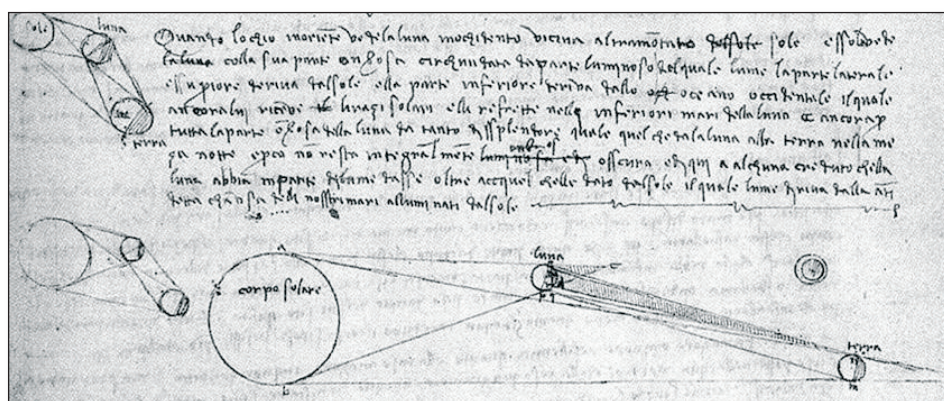 sole
luna
terra
Quando lochio inoriēte vede la luna inochidēto vicina altramōtāto sole essovede
la luna colla sua parte onbrosa circhundata da parte luminosa del quale lume la parte laterale
e ssupiore diriva dal sole ella parte inferiore deriva dallo oceano occidentale il quale
ancora lui riceve li razi solari elli refrette nelli inferiori mari della luna e ancora p
tutta la parte onbrosa della luna da tanto dissplendore quale quel che da la luna alla terra nella me
za notte e pco nō resta integralmēte oscura e di qui a alchuno creduto chella
luna abbia inparte dilume dasse oltre acquel chelle dato dal sole il quale lume diriva dalla āti
detta chausa delli nosstri mari alluminati dal sole
a
corpo solare
b
luna
terra